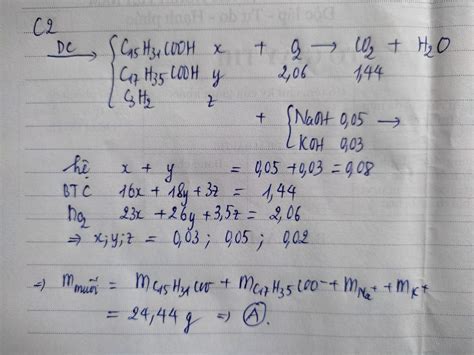 C2
ĐC → { C15H31COOH x + O2 → CO2 + H2O
C17H35COOH y 2,06 1,44
C3H2 z
+ { NaOH 0,05 →
KOH 0,03
hệ x + y = 0,05 + 0,03 = 0,08
BTC 16x + 18y + 3z = 1,44
nO2 23x + 26y + 3,5z = 2,06
⇒ x; y; z = 0,03 ; 0,05 ; 0,02
⇒ m muối = mC15H31COO- + mC17H35COO- + mNa+ + mK+
= 24,44 g ⇒ A.